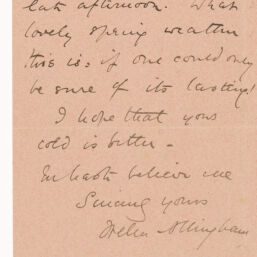 late afternoon. What
lovely spring weather
this is: if one could only
be sure of its lasting!
I hope that your
cold is better -
In haste believe me
Sincerely yours
Helen Allingham